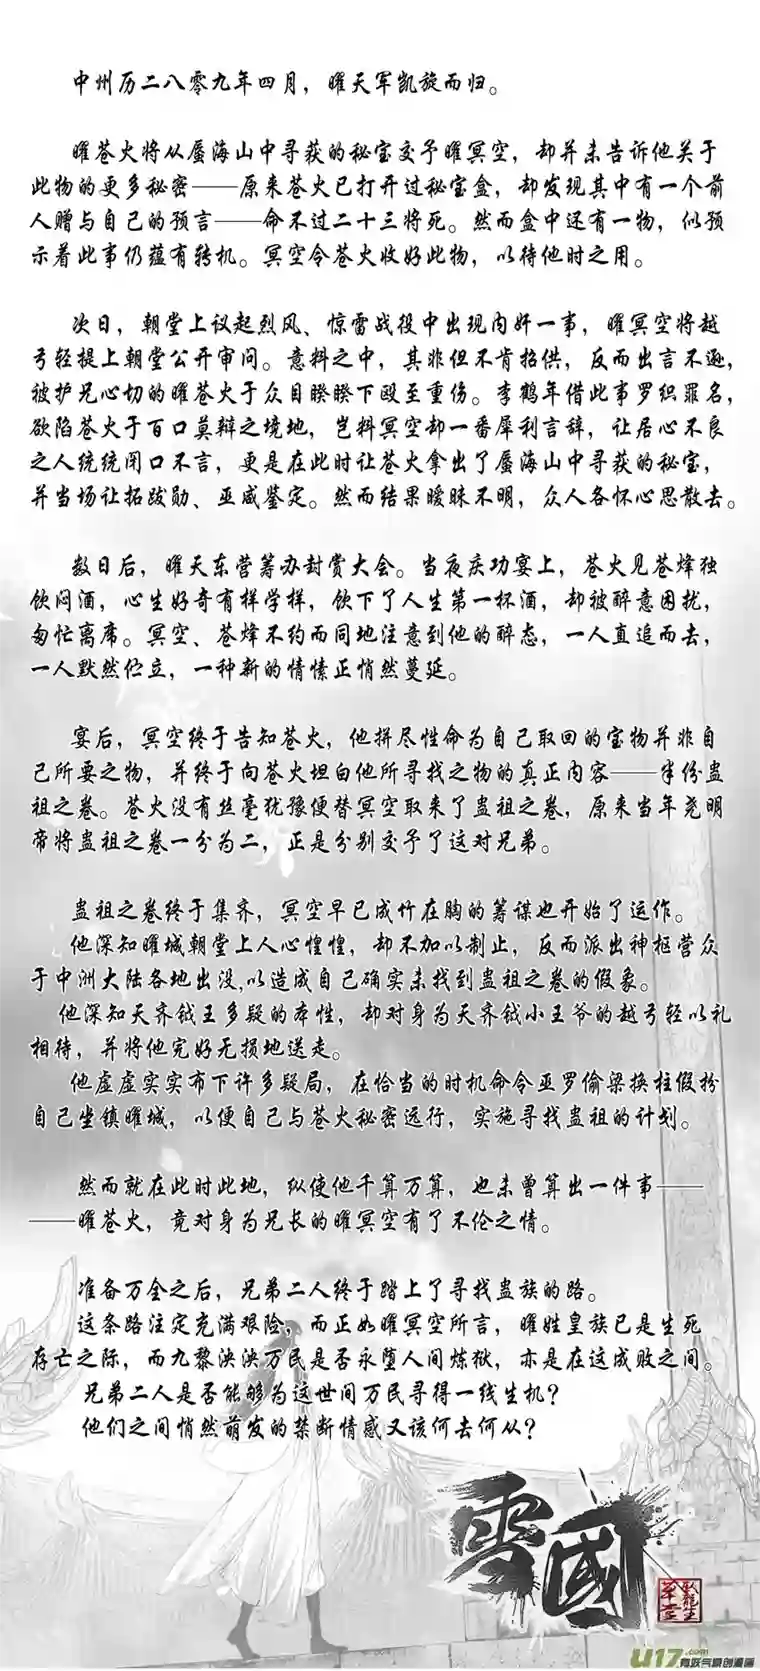 中州历二八零九年四月，曜天军凯旋而归。
曜苍火将从蜃海山中寻获的秘宝交予曜冥空，却并未告诉他关于
此物的更多秘密——原来苍火已打开过秘宝盒，却发现其中有一个前
人赠与自己的预言——命不过二十三将死。然而盒中还有一物，似预
示着此事仍蕴有转机。冥空令苍火收好此物，以待他时之用。
次日，朝堂上议起烈风、惊雷战役中出现内奸一事，曜冥空将越
弓轻提上朝堂公开审问。意料之中，其非但不肯招供，反而出言不逊，
被护兄心切的曜苍火于众目睽睽下殴至重伤。李鹤年借此事罗织罪名，
欲陷苍火于百口莫辩之境地，岂料冥空却一番犀利言辞，让居心不良
之人统统闭口不言，更是在此时让苍火拿出了蜃海山中寻获的秘宝，
并当场让拓跋勋、亚戚鉴定。然而结果暧昧不明，众人各怀心思散去。
数日后，曜天东营筹办封赏大会。当夜庆功宴上，苍火见苍烽独
饮闷酒，心生好奇有样学样，饮下了人生第一杯酒，却被醉意困扰，
匆忙离席。冥空、苍烽不约而同地注意到他的醉态，一人直追而去，
一人默然伫立，一种新的情愫正悄然蔓延。
宴后，冥空终于告知苍火，他拼尽性命为自己取回的宝物并非自
己所要之物，并终于向苍火坦白他所寻找之物的真正内容——半份蛊
祖之卷。苍火没有丝毫犹豫便替冥空取来了蛊祖之卷，原来当年尧明
帝将蛊祖之卷一分为二，正是分别交予了这对兄弟。
蛊祖之卷终于集齐，冥空早已成竹在胸的筹谋也开始了运作。
他深知曜城朝堂上人心惶惶，却不加以制止，反而派出神枢营众
于中洲大陆各地出没,以造成自己确实未找到蛊祖之卷的假象。
他深知天齐钺王多疑的本性，却对身为天齐钺小王爷的越弓轻以礼
相待，并将他完好无损地送走。
他虚虚实实布下许多疑局，在恰当的时机命令亚罗偷梁换柱假扮
自己坐镇曜城，以便自己与苍火秘密远行，实施寻找蛊祖的计划。
然而就在此时此地，纵使他千算万算，也未曾算出一件事——
——曜苍火，竟对身为兄长的曜冥空有了不伦之情。
准备万全之后，兄弟二人终于踏上了寻找蛊族的路。
这条路注定充满艰险，而正如曜冥空所言，曜姓皇族已是生死
存亡之际，而九黎泱泱万民是否永堕人间炼狱，亦是在这成败之间。
兄弟二人是否能够为这世间万民寻得一线生机？
他们之间悄然萌发的禁断情感又该何去何从？
雪國
卧龍生草堂
U17.com
有妖气原创漫画